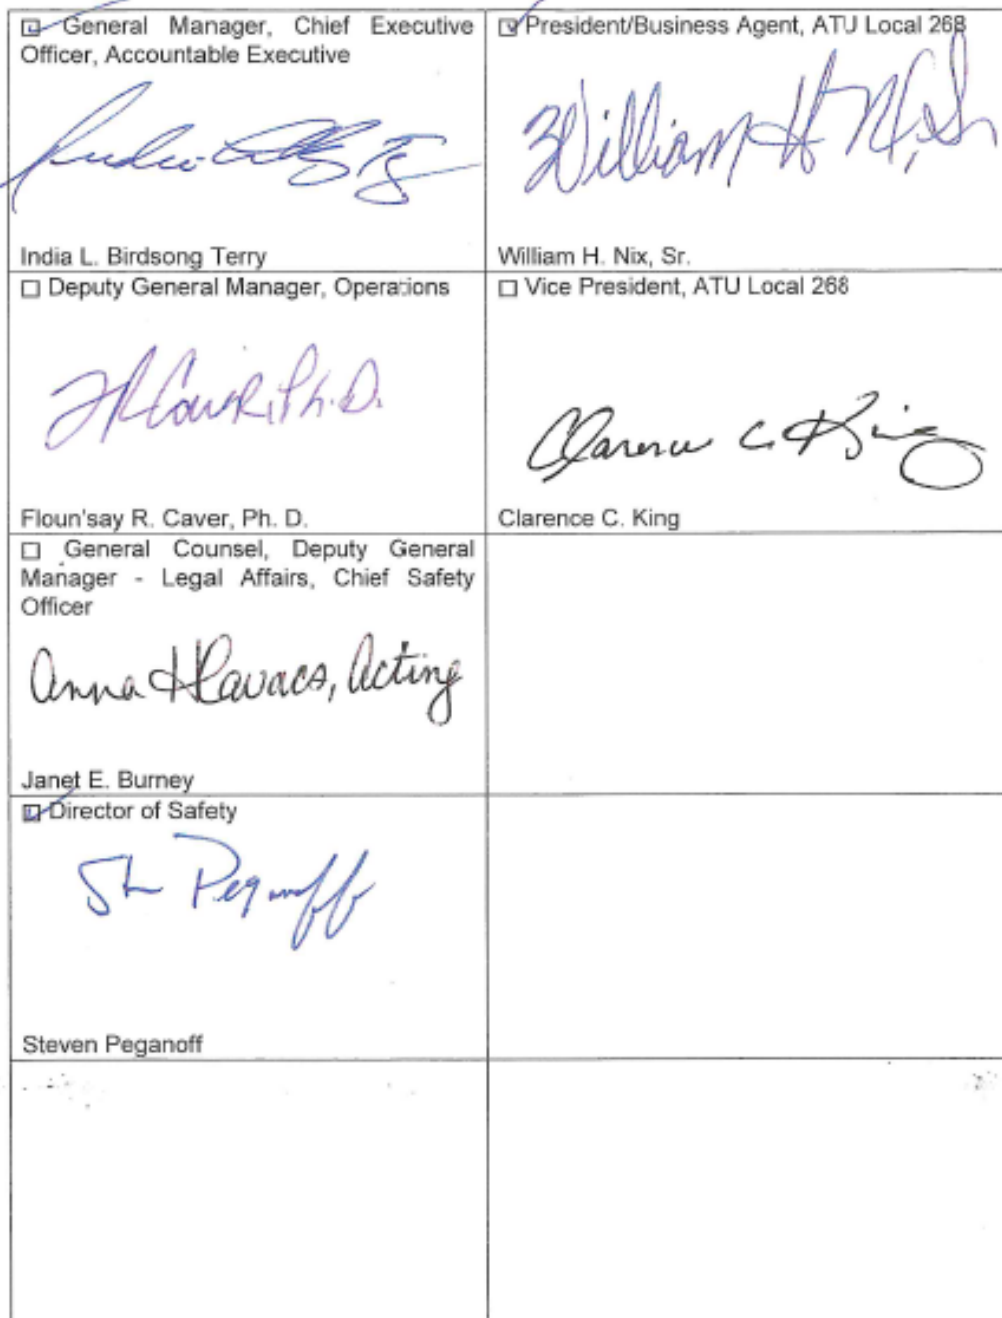 ☑ General Manager, Chief Executive
Officer, Accountable Executive
India L. Birdsong Terry
☑ President/Business Agent, ATU Local 268
William H N, Sr
William H. Nix, Sr.
☐ Deputy General Manager, Operations
FRCaver, Ph.D.
Floun'say R. Caver, Ph. D.
☐ Vice President, ATU Local 268
Clarence C. King
Clarence C. King
☐ General Counsel, Deputy General
Manager - Legal Affairs, Chief Safety
Officer
Anna Hlavacs, Acting
Janet E. Burney
☑ Director of Safety
St Peganoff
Steven Peganoff